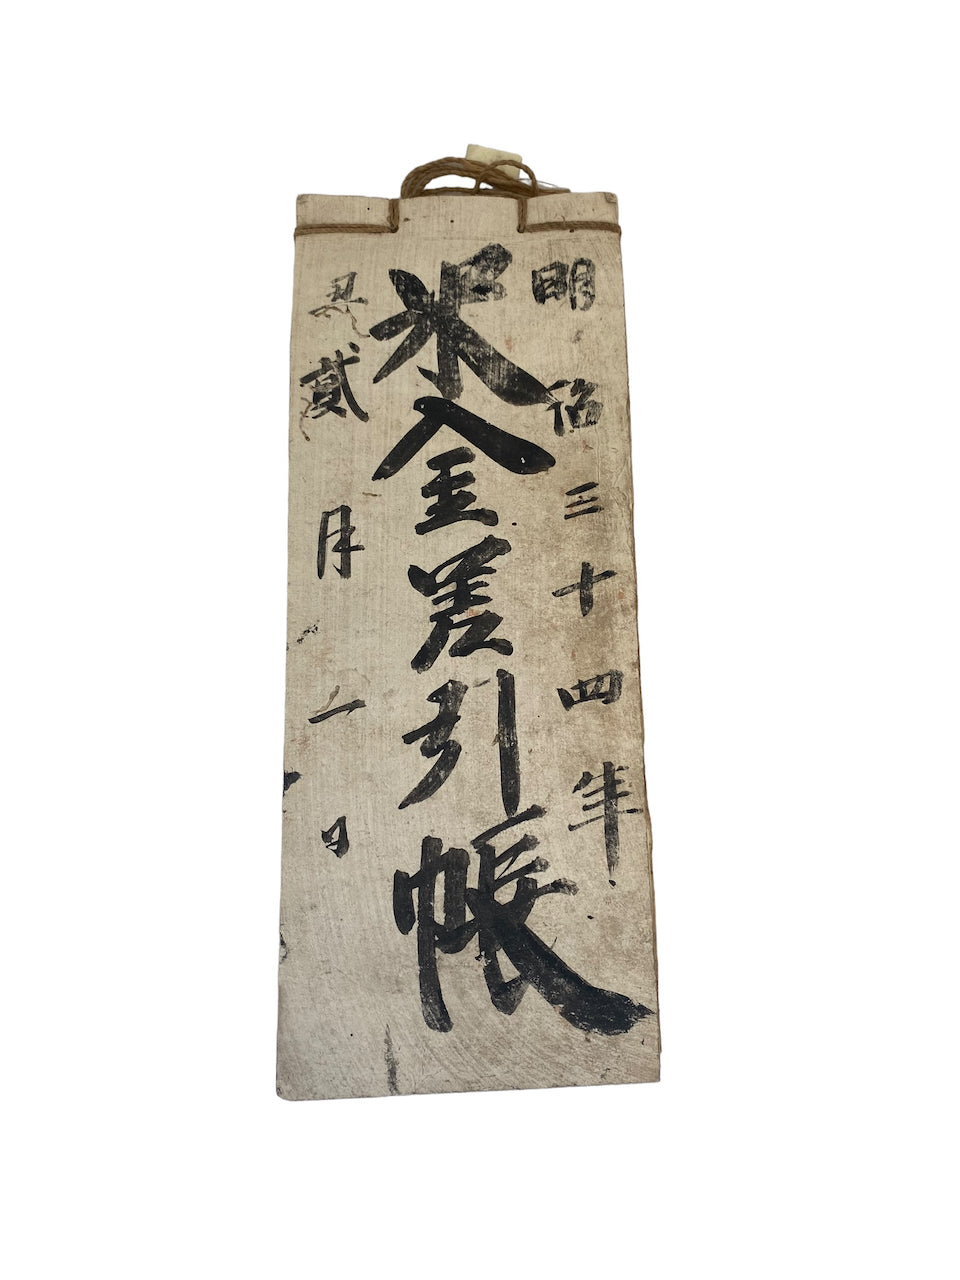 明治三十四年
米金差引帳
丑貳月一日